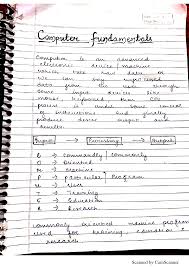 Computer fundamentals
Computer is an advanced
electronic device machine
which take raw data or
we can say input
data from the user through
some input devices like
mouse, keyboard
process it under some control
of instructions and finally
produce desire output and
results.
Input → Processing → Output
C → Commonly
O → Oriented
M → Machine
P → Particular Program
U → User
T → Training
E → Education
R → Research
commonly oriented machine program
used for training, education &
research
Scanned by CamScanner